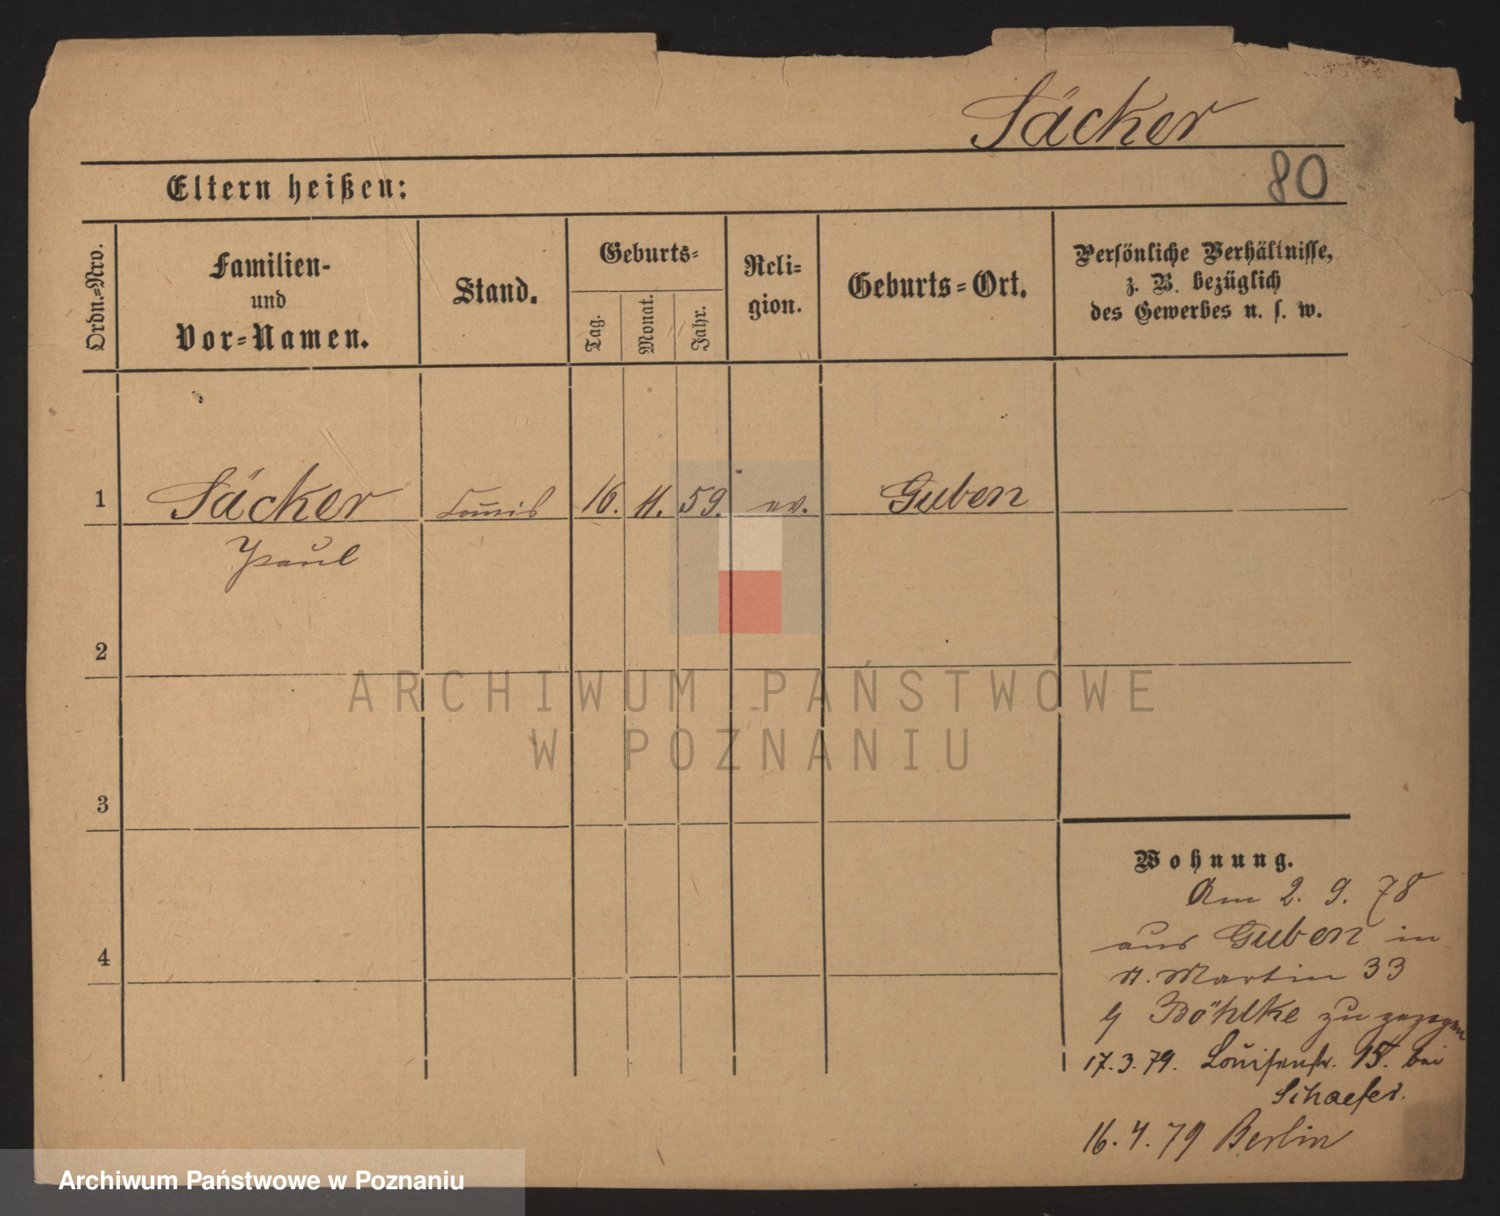 Säcker
80
Eltern heißen:
Ordn.=Nro.
Familien-
und
Vor=Namen.
Stand.
Geburts=
Tag.
Monat.
Jahr.
Reli=
gion.
Geburts=Ort.
Persönliche Verhältnisse,
z. B. bezüglich
des Gewerbes u. s. w.
1
Säcker
Commis
16.
11.
59.
ev.
Guben
Paul
2
3
4
Wohnung.
Am 2. 9. 78
aus Guben in
St. Martin 33
Böhlke zu gezogen
17.3.79. Louisenstr. 15. bei
Schaefer.
16.4.79 Berlin
ARCHIWUM PAŃSTWOWE
W POZNANIU
Archiwum Państwowe w Poznaniu